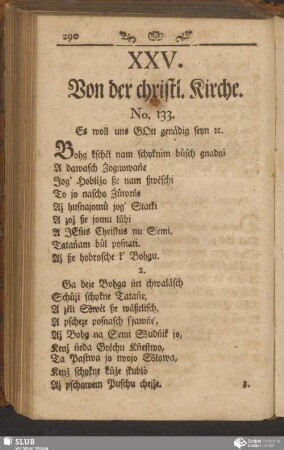 290
XXV.
Von der christl. Kirche.
No. 133.
Es woll uns GOtt genädig seyn ꝛc.
Bohg kschěl nam schyknim būsch gnadnū
A dawasch Žognowańe
Jog' Hobližo ße nam ßwěschi
To jo nascho Žůwnūs
Až husnajomū jog' Statki
A zož ße jomu lūbi
A JEsus Christus nu Semi.
Tatańam būl posnati.
Až ße hobrosche k' Bohgu.
2.
Ga deje Bohga ńet chwalūsch
Schūži schykne Tatańe,
A zěli Swět ße wäßelisch,
A pscheze posnasch sjawńe,
Až Bohg na Semi Szudńik jo,
Kenž ńeda Grěchu Kńestwo,
Ta Pastwa jo twojo Szlowa,
Kenž schykne kūže skublō
Až pschawem Puschu chejže.
3.
SLUB